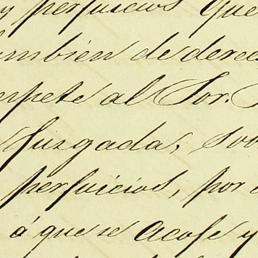 y perjuicios que
tambien de derec
mpete al Sor. J
Juzgada, sob
perjuicios, por
á que se acoje y